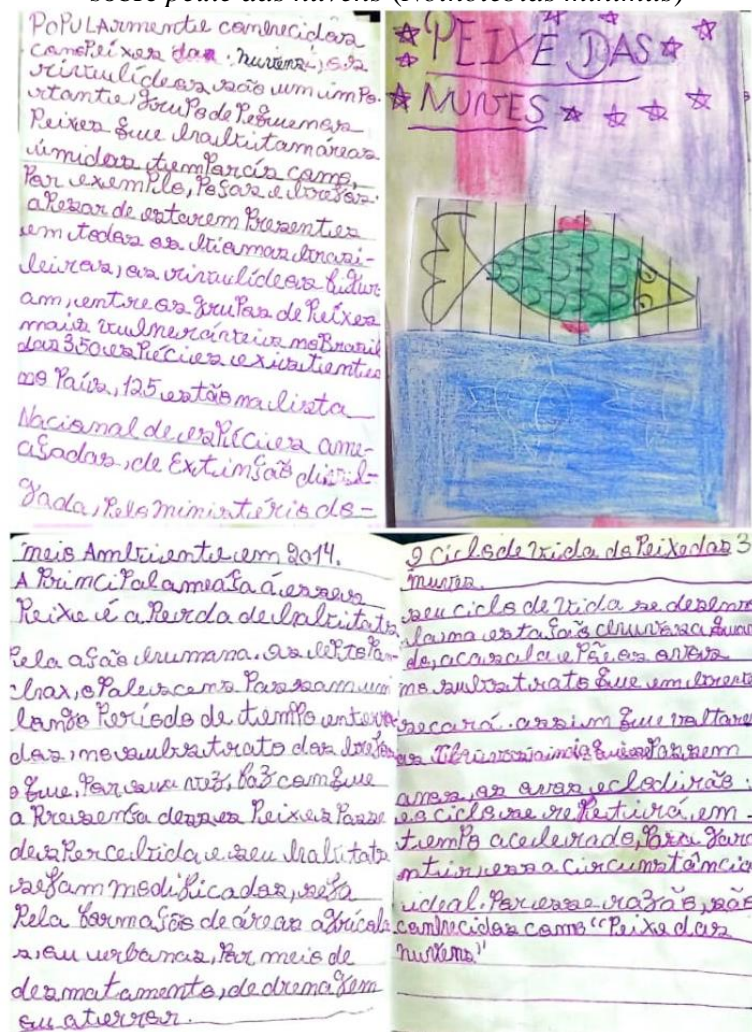 sobre peixe das nuvens (Notholebias minimus)
POPULARmente conhecidos
como Peixes das nuvens, os
rivulídeos são um impo
rtante, grupo de Pequenos
Peixes que habitam áreas
úmidas temporais como,
Por exemplo, Poças e brejos.
aPesar de estarem Presentes
em todos os biomas brasi-
leiros, os rivulídeos figur
am, entre os grupos de Peixes
mais vulneránteis no Brasil
das 350 esPécies existentes
no País, 125 estão na lista
Nacional de esPécies ame-
açadas, de Extinção divul-
gada, Pelo ministério do-
PEIXE DAS
NUVES
meio Ambiente em 2014.
A PrinciPal ameaça á esses
Peixe é a Perda de habitats
Pela ação humana. os
Passam um
longo Período de temPo enterra
dos, no substrato dos brejos
o que, Por sua vez, faz com que
a Presença desses Peixes Passe
desPercebida e seu habitats
sejam modificados, seja
Pela formação de áreas agrícola
s, ou urbanas, Por meio de
desmatamento, de drenagem
ou aterros.
O Ciclo de Vida do Peixe das 3
nuves.
seu ciclo de Vida se desenvo
la na estação chuvosa quan
do, acasala e Põi os ovos
no substrato que em breve
secará. assim que voltare
as chuvas ainda que se Passem
anos, os ovos eclodirão
e o ciclo se rePetirá, em-
temPo acelerado, Para gara
ntir essa circunstância
ideal. Por esse razão, são
conhecidos como "Peixe das
nuvens"